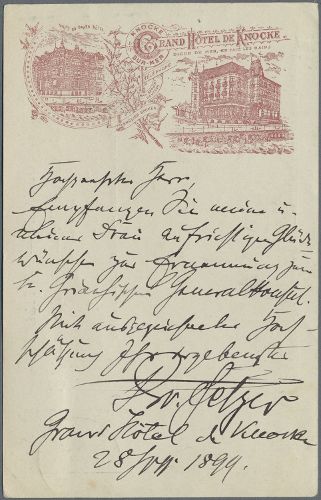 KNOCKE
SUR-MER
GRAND HÔTEL DE KNOCKE
DIGUE DE MER, EN FACE LES BAINS
Hochgeehrter Herr,
Empfangen Sie meine u.
meiner Frau aufrichtigen Glück
wünsche zur Ernennung zum
k. Griechischen Generalkonsul.
Mit ausgezeichneter Hoch-
schätzung Ihr ergebenster
Dr. Setzer
Grand Hôtel de Knocke
28 1899.